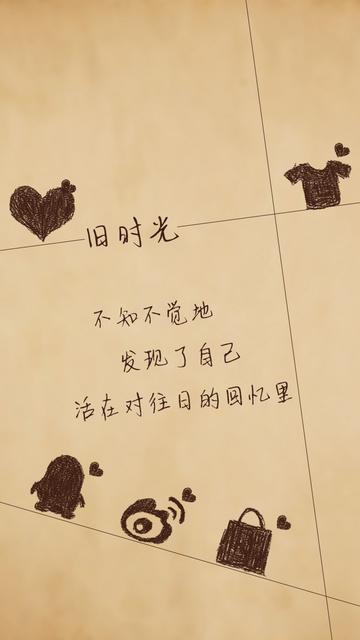 旧时光
不知不觉地
发现了自己
活在对往日的回忆里